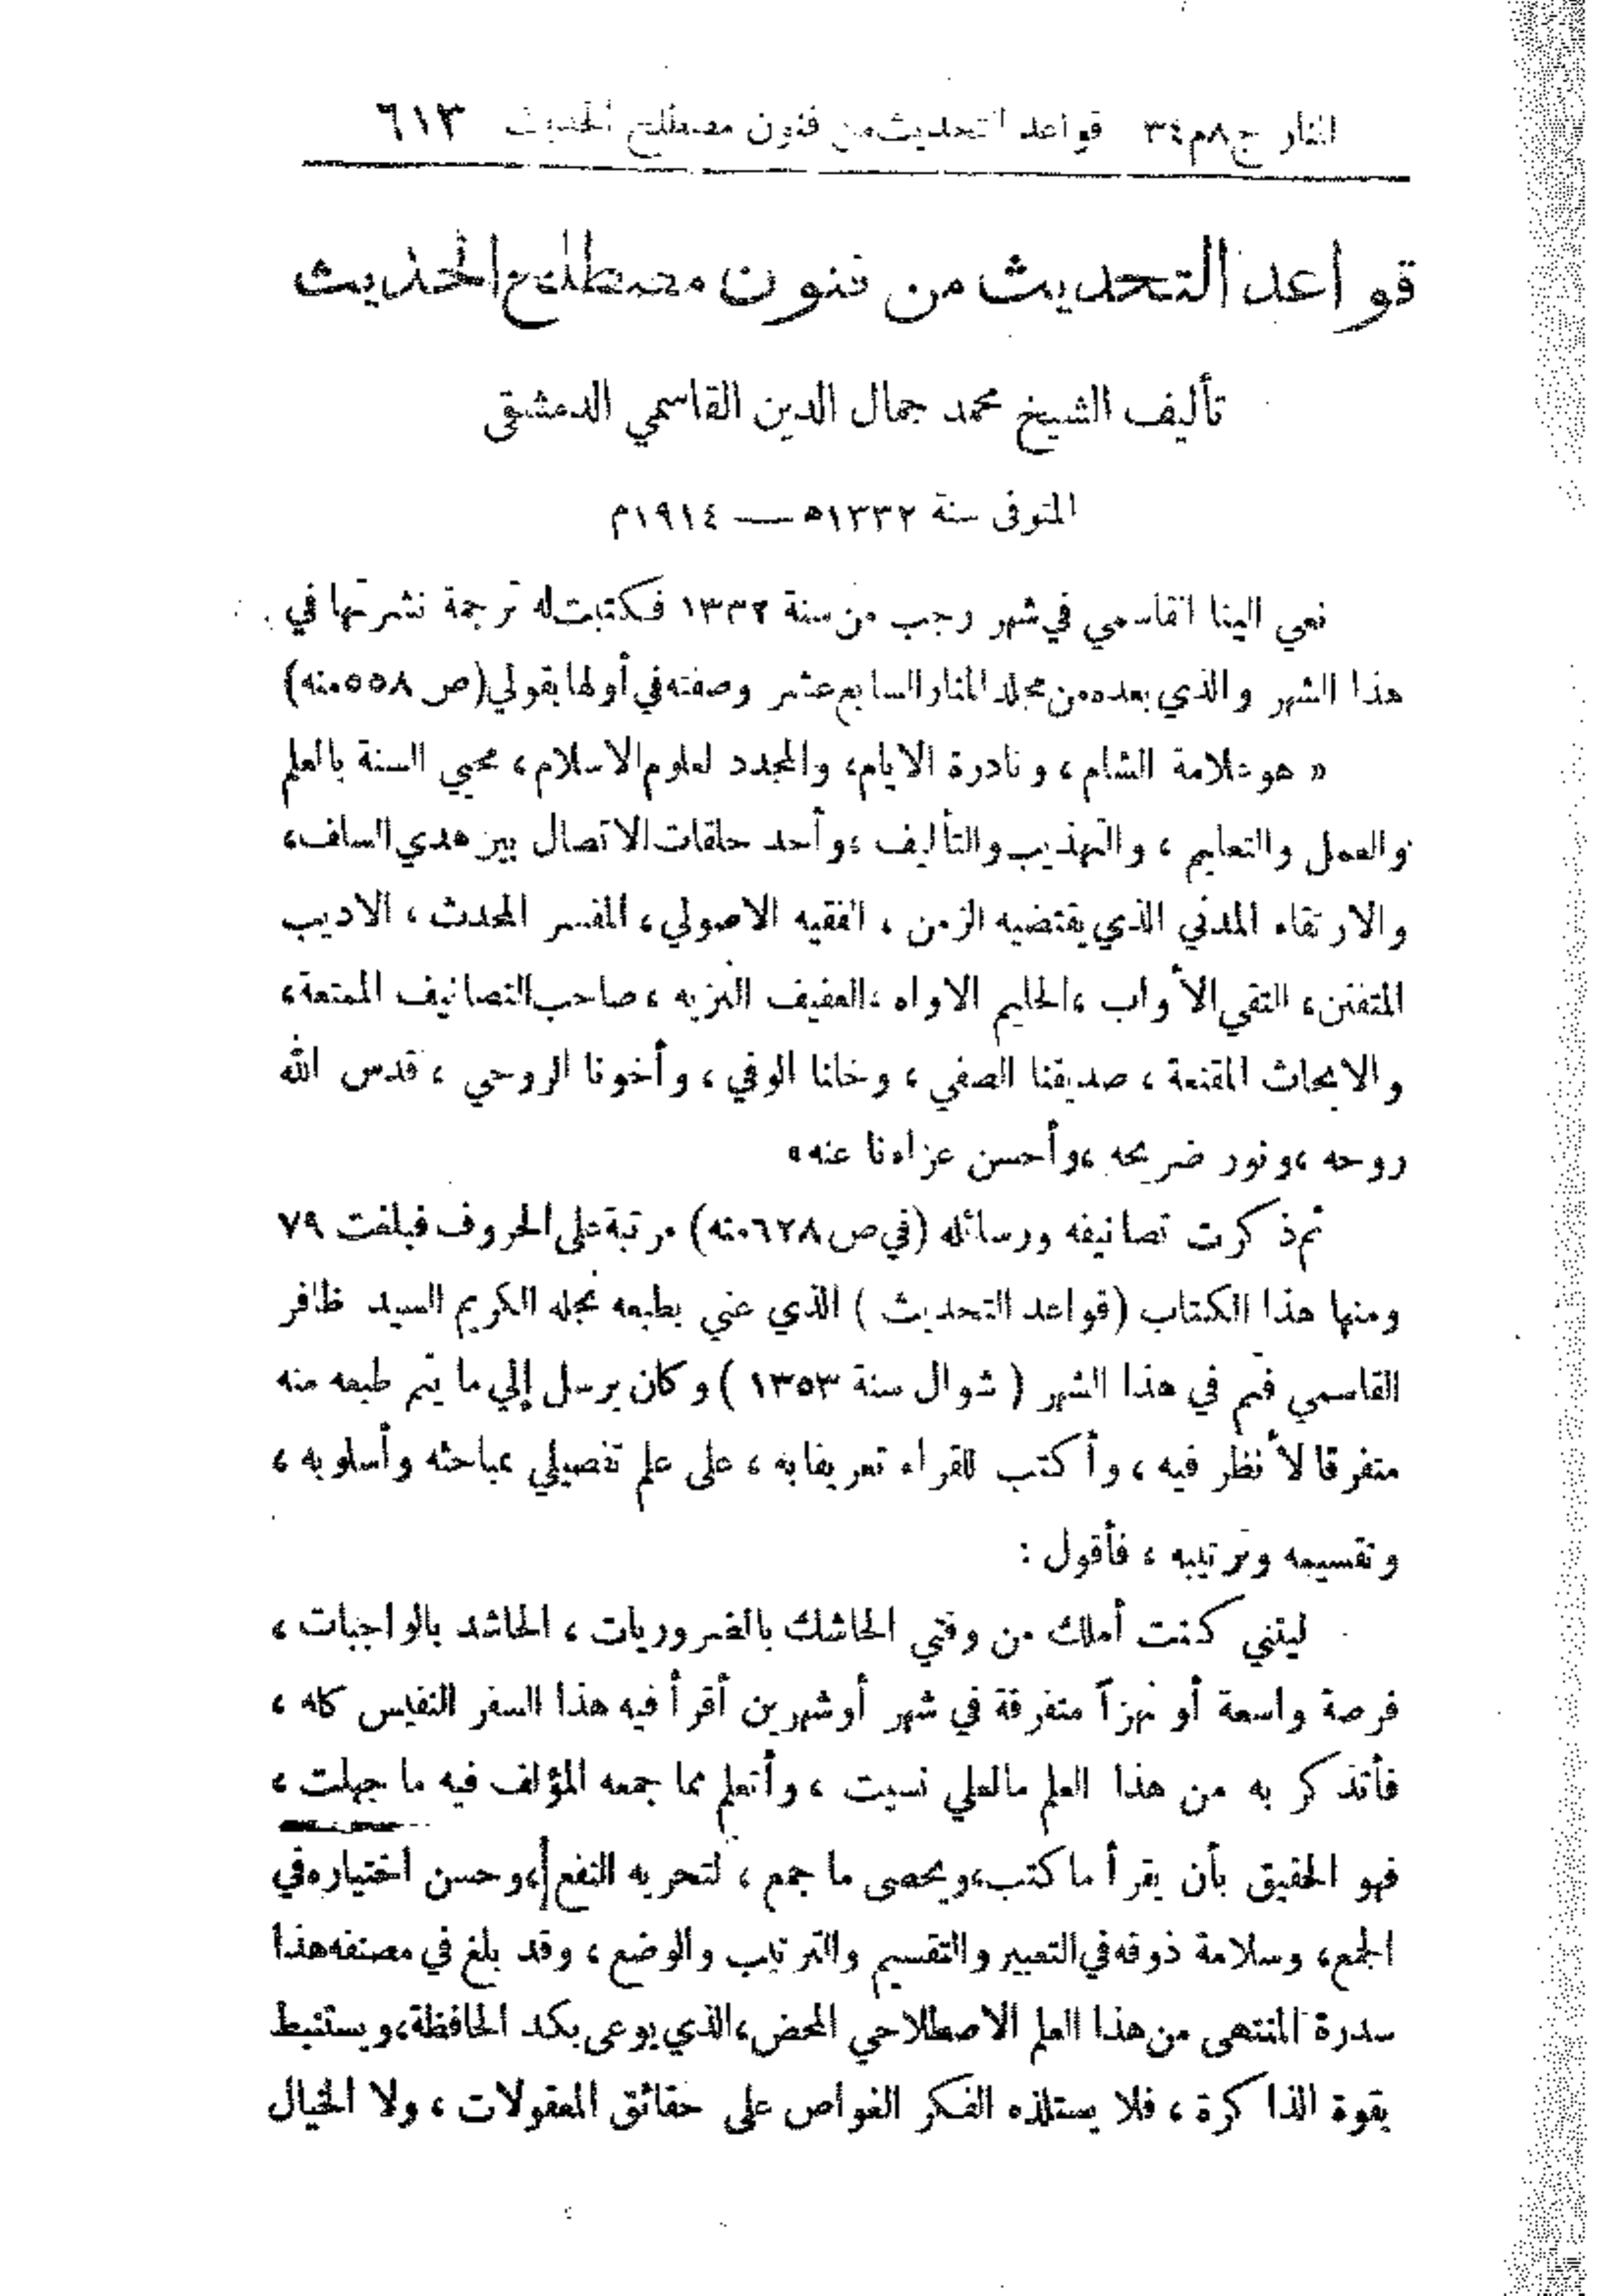 المنار ج٨م٣٤ قواعد التحديث من فنون مصطلح الحديث ٦١٣
قواعد التحديث من فنون مصطلح الحديث
تأليف الشيخ محمد جمال الدين القاسمي الدمشقي
المتوفى سنة ١٣٣٢ه — ١٩١٤م
نعي الينا القاسمي في شهر رجب من سنة ١٣٣٢ فكتبت له ترجمة نشرتها في
هذا الشهر والذي بعده من مجلد المنار السابع عشر وصفته في أولها بقولي (ص ٥٥٨ منه)
« هو علامة الشام، ونادرة الايام، والمجدد لعلوم الاسلام، محيي السنة بالعلم
والعمل والتعليم، والتهذيب والتأليف، وأحد حلقات الاتصال بين هدي السلف،
والارتقاء المدني الذي يقتضيه الزمن، الفقيه الاصولي، المفسر المحدث، الاديب
المتفنن، التقي الأواب، الحليم الاواه، العفيف النزيه، صاحب التصانيف الممتعة،
والابحاث المقنعة، صديقنا الصفي، وخلنا الوفي، وأخونا الروحي، قدس الله
روحه، ونور ضريحه، وأحسن عزاءنا عنه»
ثم ذكرت تصانيفه ورسائله (في ص ٦٢٨ منه) مرتبة على الحروف فبلغت ٧٩
ومنها هذا الكتاب (قواعد التحديث) الذي عني بطبعه نجله الكريم السيد ظافر
القاسمي فتم في هذا الشهر (شوال سنة ١٣٥٣) وكان يرسل إلي ما يتم طبعه منه
متفرقا لأنظر فيه، وأكتب للقراء تعريفا به، على علم تفصيلي بمباحثه وأسلوبه،
وتقسيمه وترتيبه، فأقول:
ليتني كنت أملك من وقتي الحاشك بالضروريات، الحاشد بالواجبات،
فرصة واسعة أو نهزاً متفرقة في شهر أو شهرين أقرأ فيه هذا السفر النفيس كله،
فأتذكر به من هذا العلم مالعلي نسيت، وأتعلم مما جمعه المؤلف فيه ما جهلت،
فهو الحقيق بأن يقرأ ما كتب، ويحصى ما جمع، لتحريه النفع، وحسن اختياره في
الجمع، وسلامة ذوقه في التعبير والتقسيم والترتيب والوضع، وقد بلغ في مصنفه هذا
سدرة المنتهى من هذا العلم الاصطلاحي المحض، الذي يوعى بكد الحافظة، ويستنبط
بقوة الذاكرة، فلا يستلذه الفكر الغواص على حقائق المعقولات، ولا الخيال